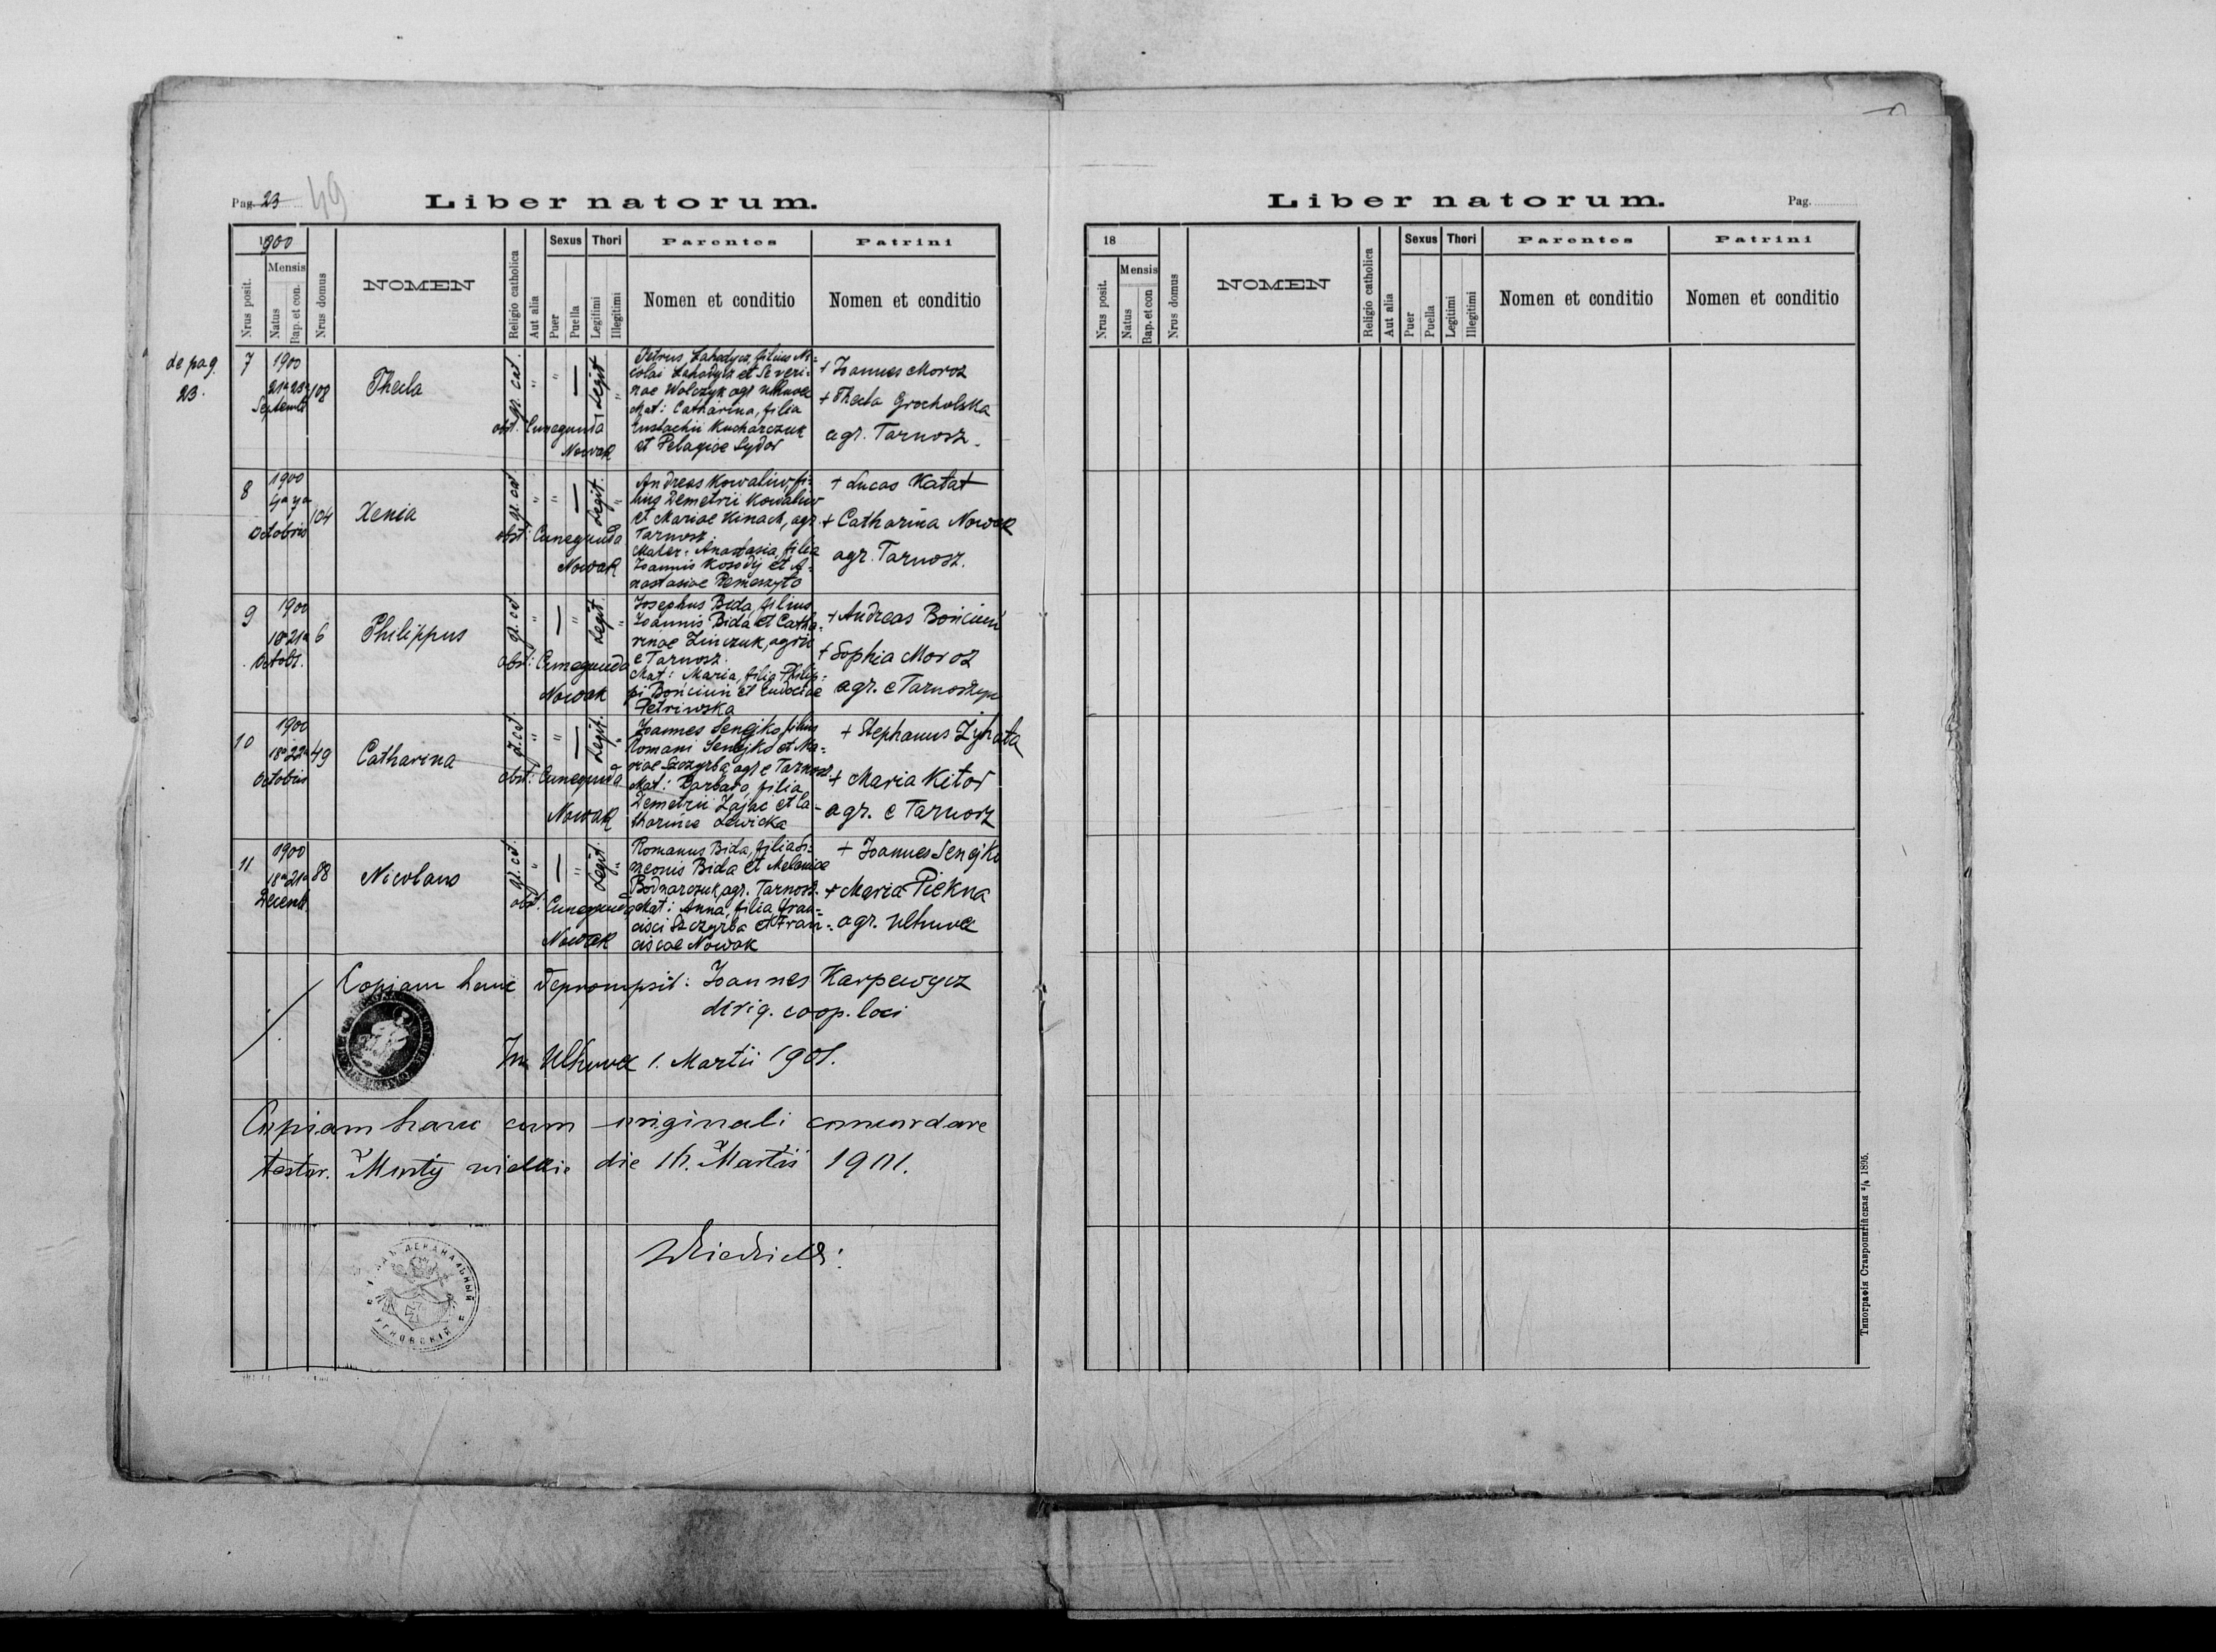 Pag. 23 49
Liber natorum.
1900
Nrus posit.
Mensis
Natus
Bap. et con.
Nrus domus
NOMEN
Religio catholica
Aut alia
Sexus
Puer
Puella
Thori
Legitimi
Illegitimi
Parentes
Nomen et conditio
Patrini
Nomen et conditio
de pag.
23.
7
1900
21a 23a
Septemb
108
Thecla
gr. cat.
Legit
obst. Cunegunda
Nowak
Petrus Lahodycz, filius Ni=
colai Lahodycz et Severi=
nae Wolczyk agr. Ulhuvek
Mat: Catharina, filia
Eustachii Kucharczuk
et Pelagiae Sydor
+ Joannes Moroz
+ Thecla Grocholska
agr. Tarnosz.
8
1900
4a 7a
Octobris
104
Xenia
gr. cat
Legit.
obst: Cunegunda
Nowak
Andreas Kowaliw, fi=
lius Demetrii Kowaliw
et Mariae Kinach, agr.
Tarnosz.
Mater: Anastasia, filia
Joannis Kosodij et A=
nastasiae Remeszyto
+ Lucas Katat
+ Catharina Nowak
agr. Tarnosz.
9
1900
18a 21a
Octobr.
6
Philippus
gr. cat
Legit.
obst: Cunegunda
Nowak
Josephus Bida, filius
Joannis Bida et Catha=
rinae Zinczuk, agric
e Tarnosz.
Mat: Maria, filia Philip=
pi Bońciuń et Eudociae
Petriwska
+ Andreas Bońciuń
+ Sophia Moroz
agr. e Tarnoszyn
10
1900
18a 22a
Octobris
49
Catharina
gr. cat
Legit.
obst: Cunegunda
Nowak
Joannes Senejko, filius
Romani Senejko et Ma=
riae Szczyrba agr e Tarnosz.
Mat: Barbara, filia
Demetrii Zając et Ca-
tharinae Lewicka
+ Stephanus Zyhata
+ Maria Kitor
agr. e Tarnosz
11
1900
18a 21a
Decemb.
88
Nicolaus
gr. cat
Legit.
obst: Cunegunda
Nowak
Romanus Bida, filia Si=
meonis Bida et Melaniae
Bodnarczuk, agr. Tarnosz.
Mat: Anna, filia Fran=
cisci Szczyrba et Fran=
ciscae Nowak
+ Joannes Senejko
+ Maria Piekna
agr. Ulhuvek
Copiam hanc depromsit: Joannes Karpewycz
dirig. coop. loci
In Ulhuvek 1. Martii 1901.
Copiam hanc cum originali concordare
testor. Mosty wielkie die 16. Martii 1901.
ДЕКАНАЛЬНЫЙ
УГНОВСКІЙ
Liber natorum.
Pag.
18
Nrus posit.
Mensis
Natus
Bap. et con
Nrus domus
NOMEN
Religio catholica
Aut alia
Sexus
Puer
Puella
Thori
Legitimi
Illegitimi
Parentes
Nomen et conditio
Patrini
Nomen et conditio
Типографія Ставропигійская ²/₄ 1895.